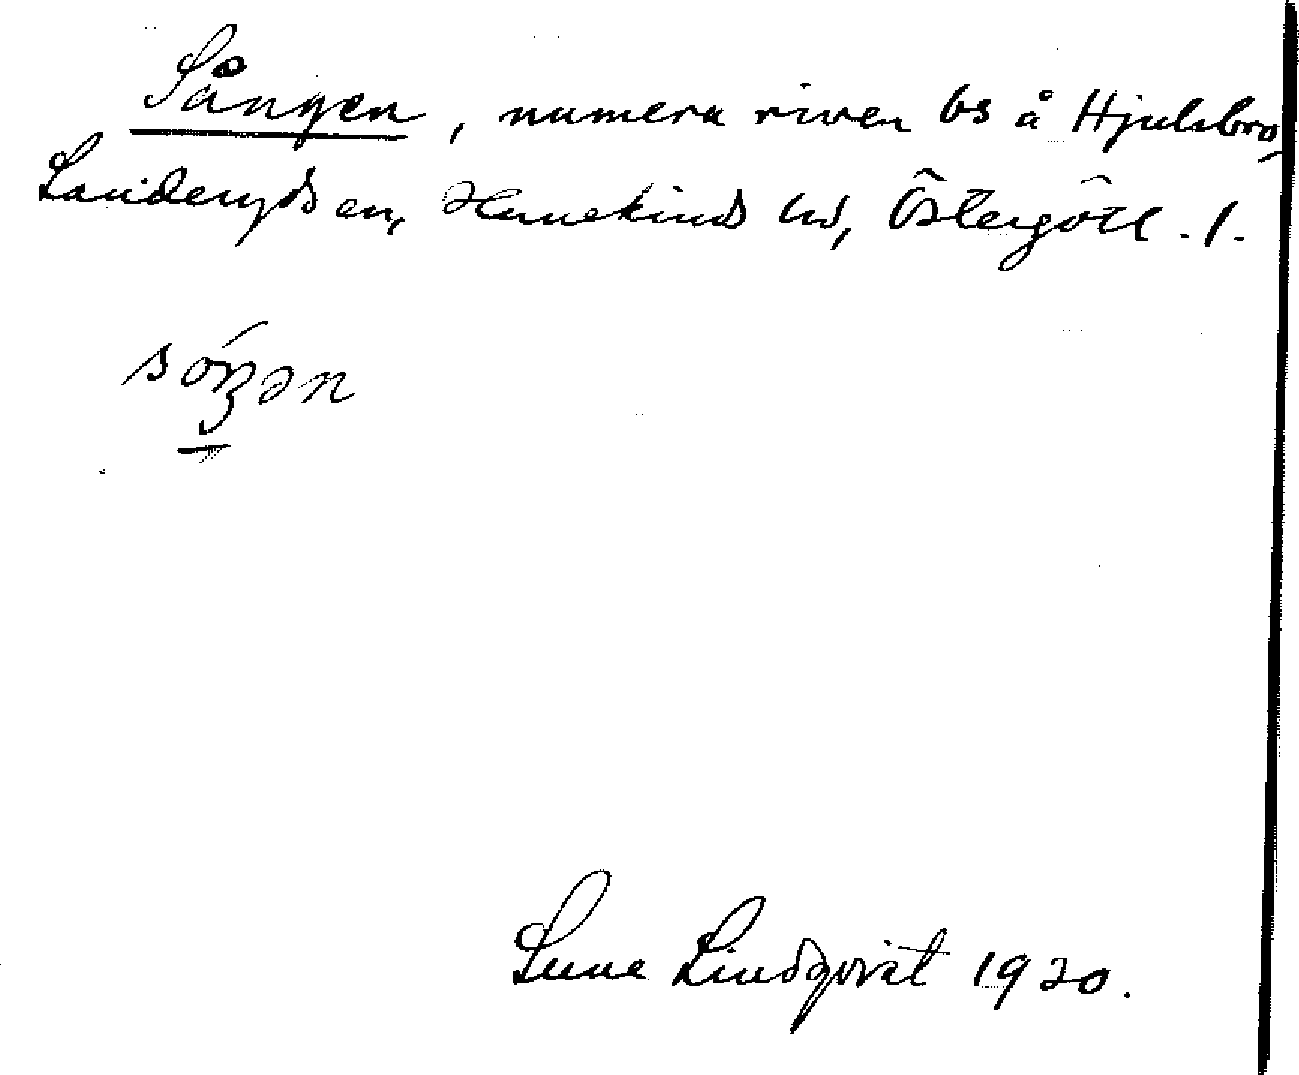 Sången, numera riven bs å Hjulsbro,
Landeryds sn, Hanekinds hd, Östergötl. l.
sóŋən
Sune Lindqvist 1920.